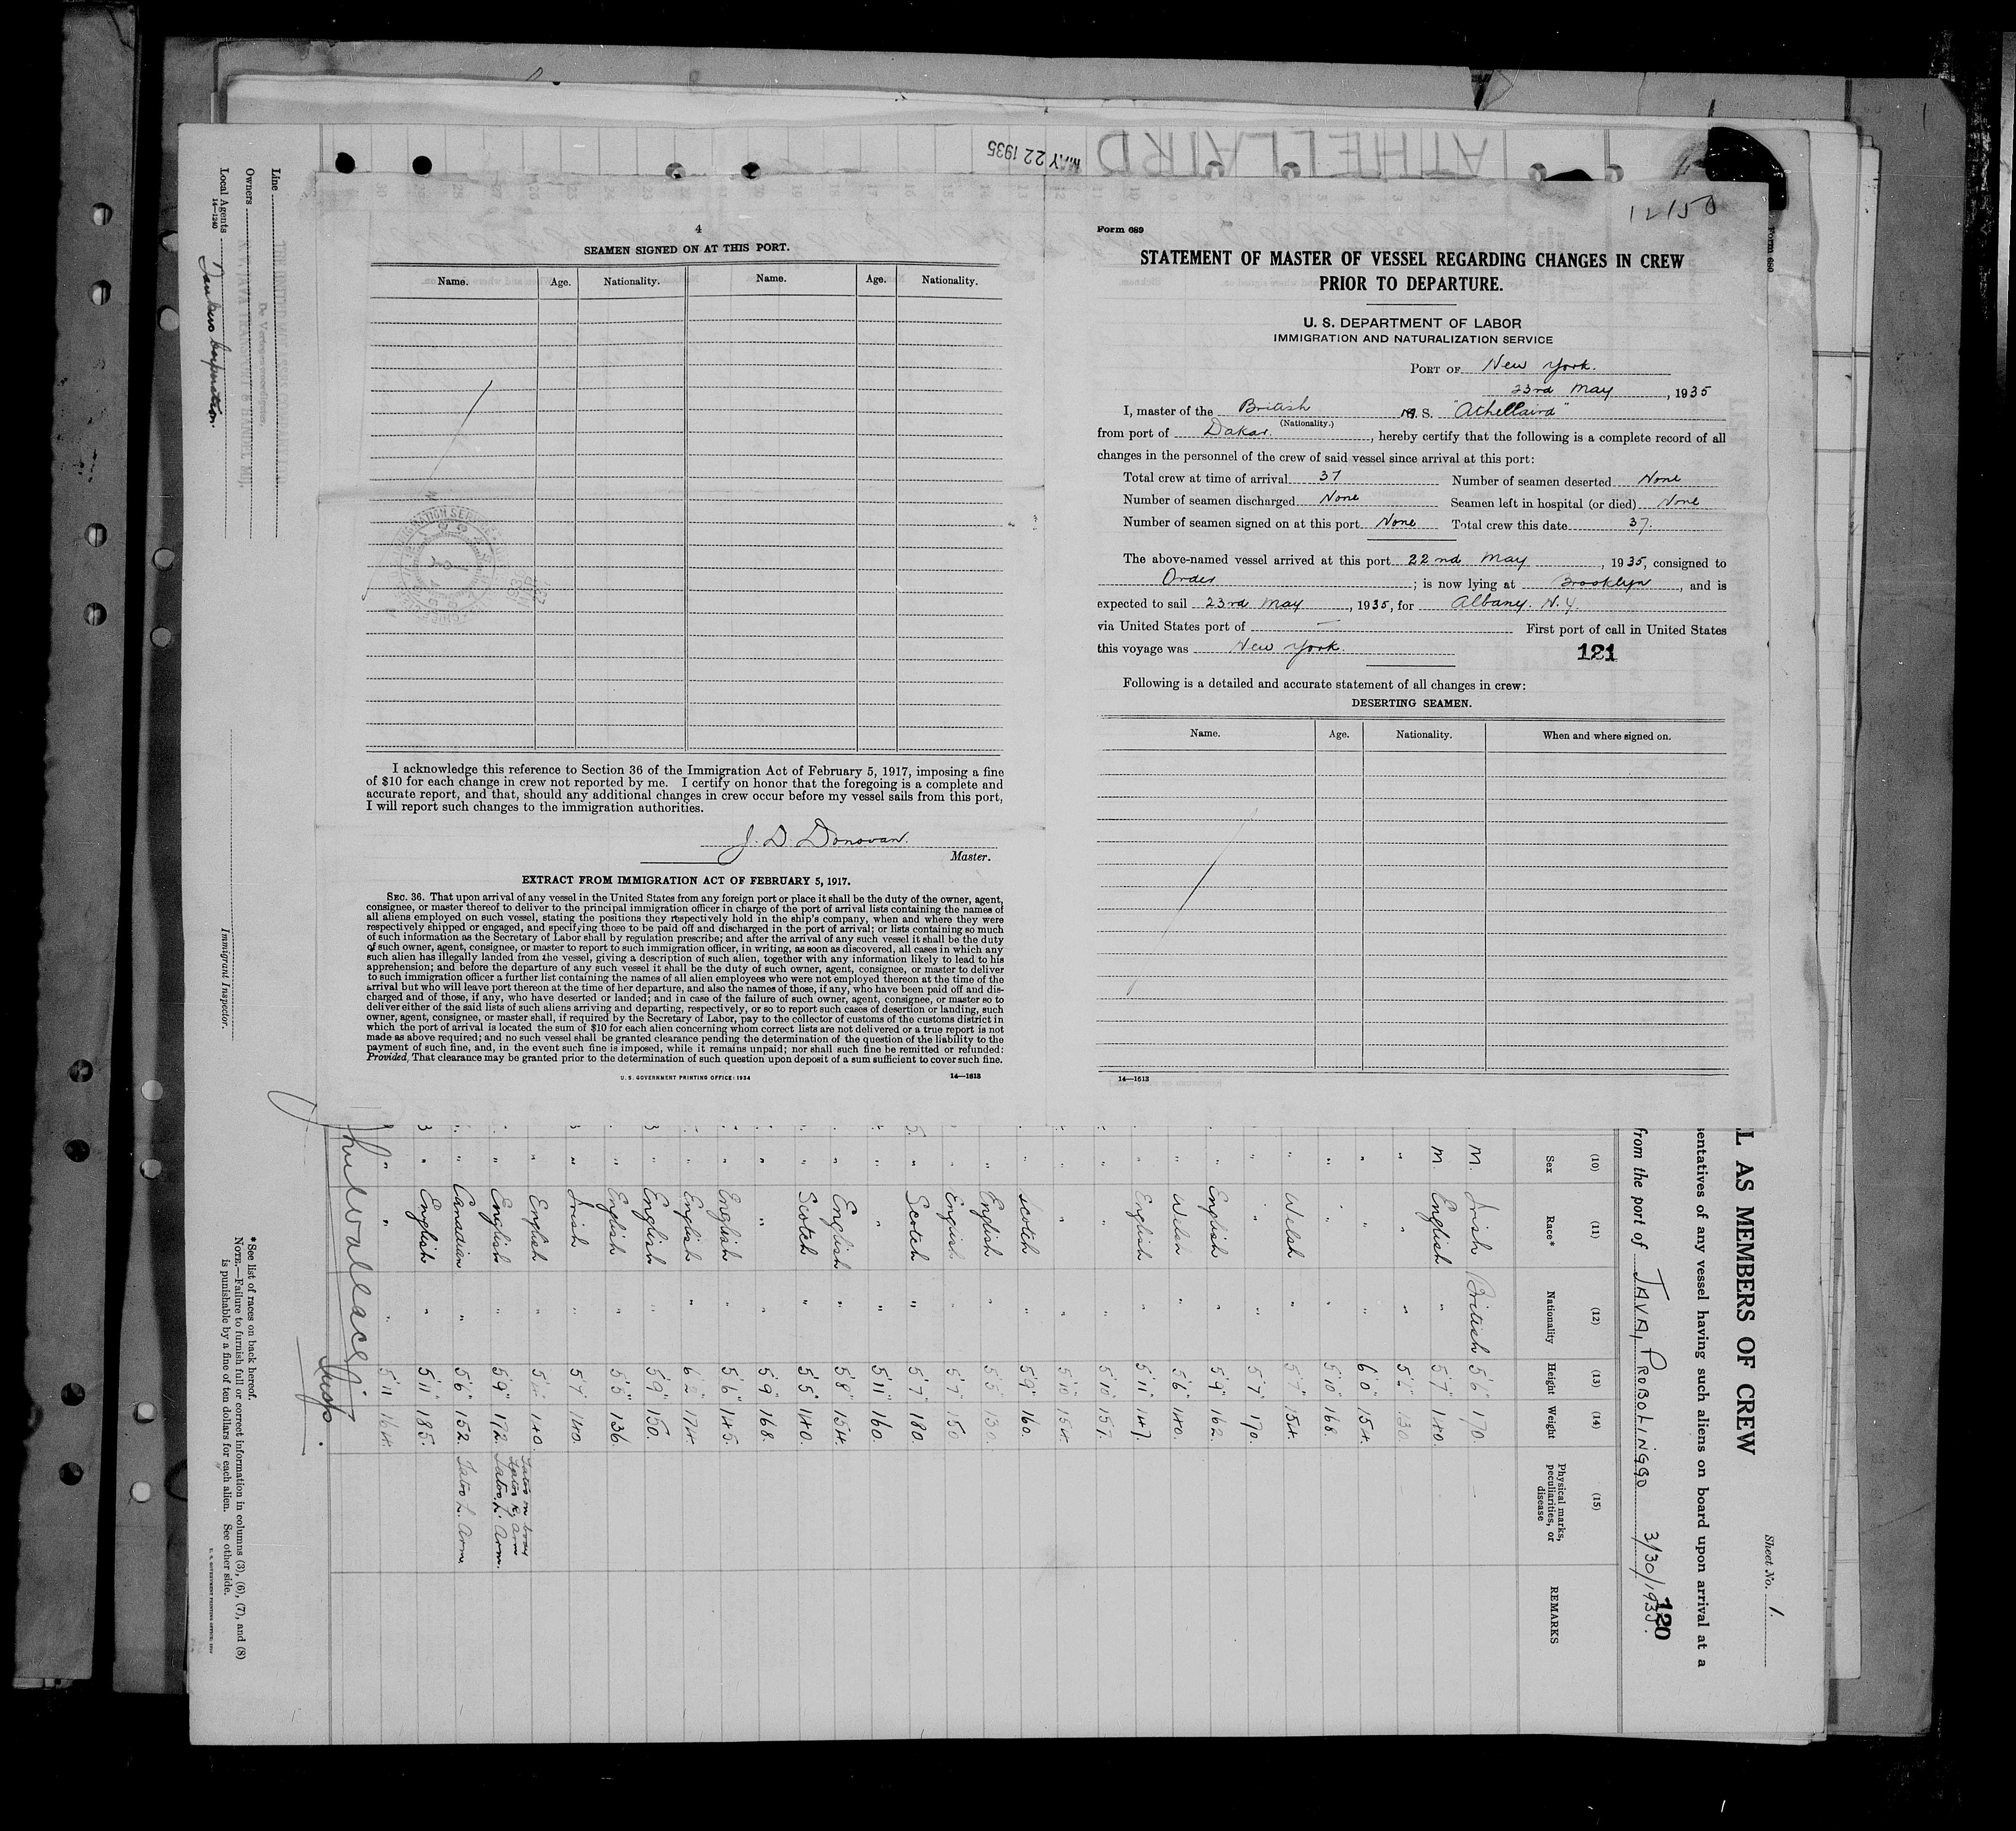 MAY 22 1935
ATHELLAIRD
12150
Form 689
4
SEAMEN SIGNED ON AT THIS PORT.
Name. Age. Nationality. Name. Age. Nationality.
I acknowledge this reference to Section 36 of the Immigration Act of February 5, 1917, imposing a fine
of $10 for each change in crew not reported by me. I certify on honor that the foregoing is a complete and
accurate report, and that, should any additional changes in crew occur before my vessel sails from this port,
I will report such changes to the immigration authorities.
J. D. Donovan.
Master.
EXTRACT FROM IMMIGRATION ACT OF FEBRUARY 5, 1917.
SEC. 36. That upon arrival of any vessel in the United States from any foreign port or place it shall be the duty of the owner, agent,
consignee, or master thereof to deliver to the principal immigration officer in charge of the port of arrival lists containing the names of
all aliens employed on such vessel, stating the positions they respectively hold in the ship's company, when and where they were
respectively shipped or engaged, and specifying those to be paid off and discharged in the port of arrival; or lists containing so much
of such information as the Secretary of Labor shall by regulation prescribe; and after the arrival of any such vessel it shall be the duty
of such owner, agent, consignee, or master to report to such immigration officer, in writing, as soon as discovered, all cases in which any
such alien has illegally landed from the vessel, giving a description of such alien, together with any information likely to lead to his
apprehension; and before the departure of any such vessel it shall be the duty of such owner, agent, consignee, or master to deliver
to such immigration officer a further list containing the names of all alien employees who were not employed thereon at the time of the
arrival but who will leave port thereon at the time of her departure, and also the names of those, if any, who have been paid off and dis-
charged and of those, if any, who have deserted or landed; and in case of the failure of such owner, agent, consignee, or master so to
deliver either of the said lists of such aliens arriving and departing, respectively, or so to report such cases of desertion or landing, such
owner, agent, consignee, or master shall, if required by the Secretary of Labor, pay to the collector of customs of the customs district in
which the port of arrival is located the sum of $10 for each alien concerning whom correct lists are not delivered or a true report is not
made as above required; and no such vessel shall be granted clearance pending the determination of the question of the liability to the
payment of such fine, and, in the event such fine is imposed, while it remains unpaid; nor shall such fine be remitted or refunded:
Provided, That clearance may be granted prior to the determination of such question upon deposit of a sum sufficient to cover such fine.
U. S. GOVERNMENT PRINTING OFFICE: 1934 14—1613
Form 689
STATEMENT OF MASTER OF VESSEL REGARDING CHANGES IN CREW
PRIOR TO DEPARTURE.
U. S. DEPARTMENT OF LABOR
IMMIGRATION AND NATURALIZATION SERVICE
PORT OF New York.
23rd May, 1935
I, master of the British M. S. "Athellaird"
(Nationality.)
from port of Dakar., hereby certify that the following is a complete record of all
changes in the personnel of the crew of said vessel since arrival at this port:
Total crew at time of arrival 37 Number of seamen deserted None
Number of seamen discharged None Seamen left in hospital (or died) None
Number of seamen signed on at this port None Total crew this date 37.
The above-named vessel arrived at this port 22nd May, 1935, consigned to
Order; is now lying at Brooklyn, and is
expected to sail 23rd May, 1935, for Albany. N.Y.
via United States port of — First port of call in United States
this voyage was New York.
121
Following is a detailed and accurate statement of all changes in crew:
DESERTING SEAMEN.
Name. Age. Nationality. When and where signed on.
14—1613
Sheet No. 1.
L AS MEMBERS OF CREW
sentatives of any vessel having such aliens on board upon arrival at a
from the port of JAVA, PROBOLINGGO 3/30/1935.
120
(10) (11) (12) (13) (14) (15)
Sex Race* Nationality Height Weight Physical marks, peculiarities, or disease REMARKS
M. Irish British 5'6" 170.
M. English " 5'7" 140.
" " " 130.
" " " 6'0" 154.
" " " 5'10" 168.
" Welsh " 5'7" 154.
" " " 5'7" 170.
" English " 5'9" 162.
" Welsh " 5'6" 140.
" English " 5'11" 147.
" " " 5'10" 157.
" " " 5'10" 154.
" Scotch " 5'9" 160.
" English " 5'5" 130.
" English " 5'7" 150
" Scotch " 5'7" 180.
" " " 5'11" 160.
" English " 5'8" 154.
" Scotch " 5'5" 140.
" " " 5'9" 168.
" English " 5'6" 145.
" English " 174.
" English " 5'9" 150.
" English " 5'5" 136.
" Irish " 5'7" 140.
" English " 140. Tatoo R. Arm
" English " 5'9" 172. Tatoo L. Arm.
" Canadian " 5'6" 152. Tatoo L. Arm.
" English " 5'11" 185.
" " " 5'11" 164.
Insp.
Line
Owners
Local Agents Tankers Corporation.
14—1240
Immigrant Inspector.
*See list of races on back hereof.
NOTE.—Failure to furnish full or correct information in columns (3), (6), (7), and (8)
is punishable by a fine of ten dollars for each alien. See other side.